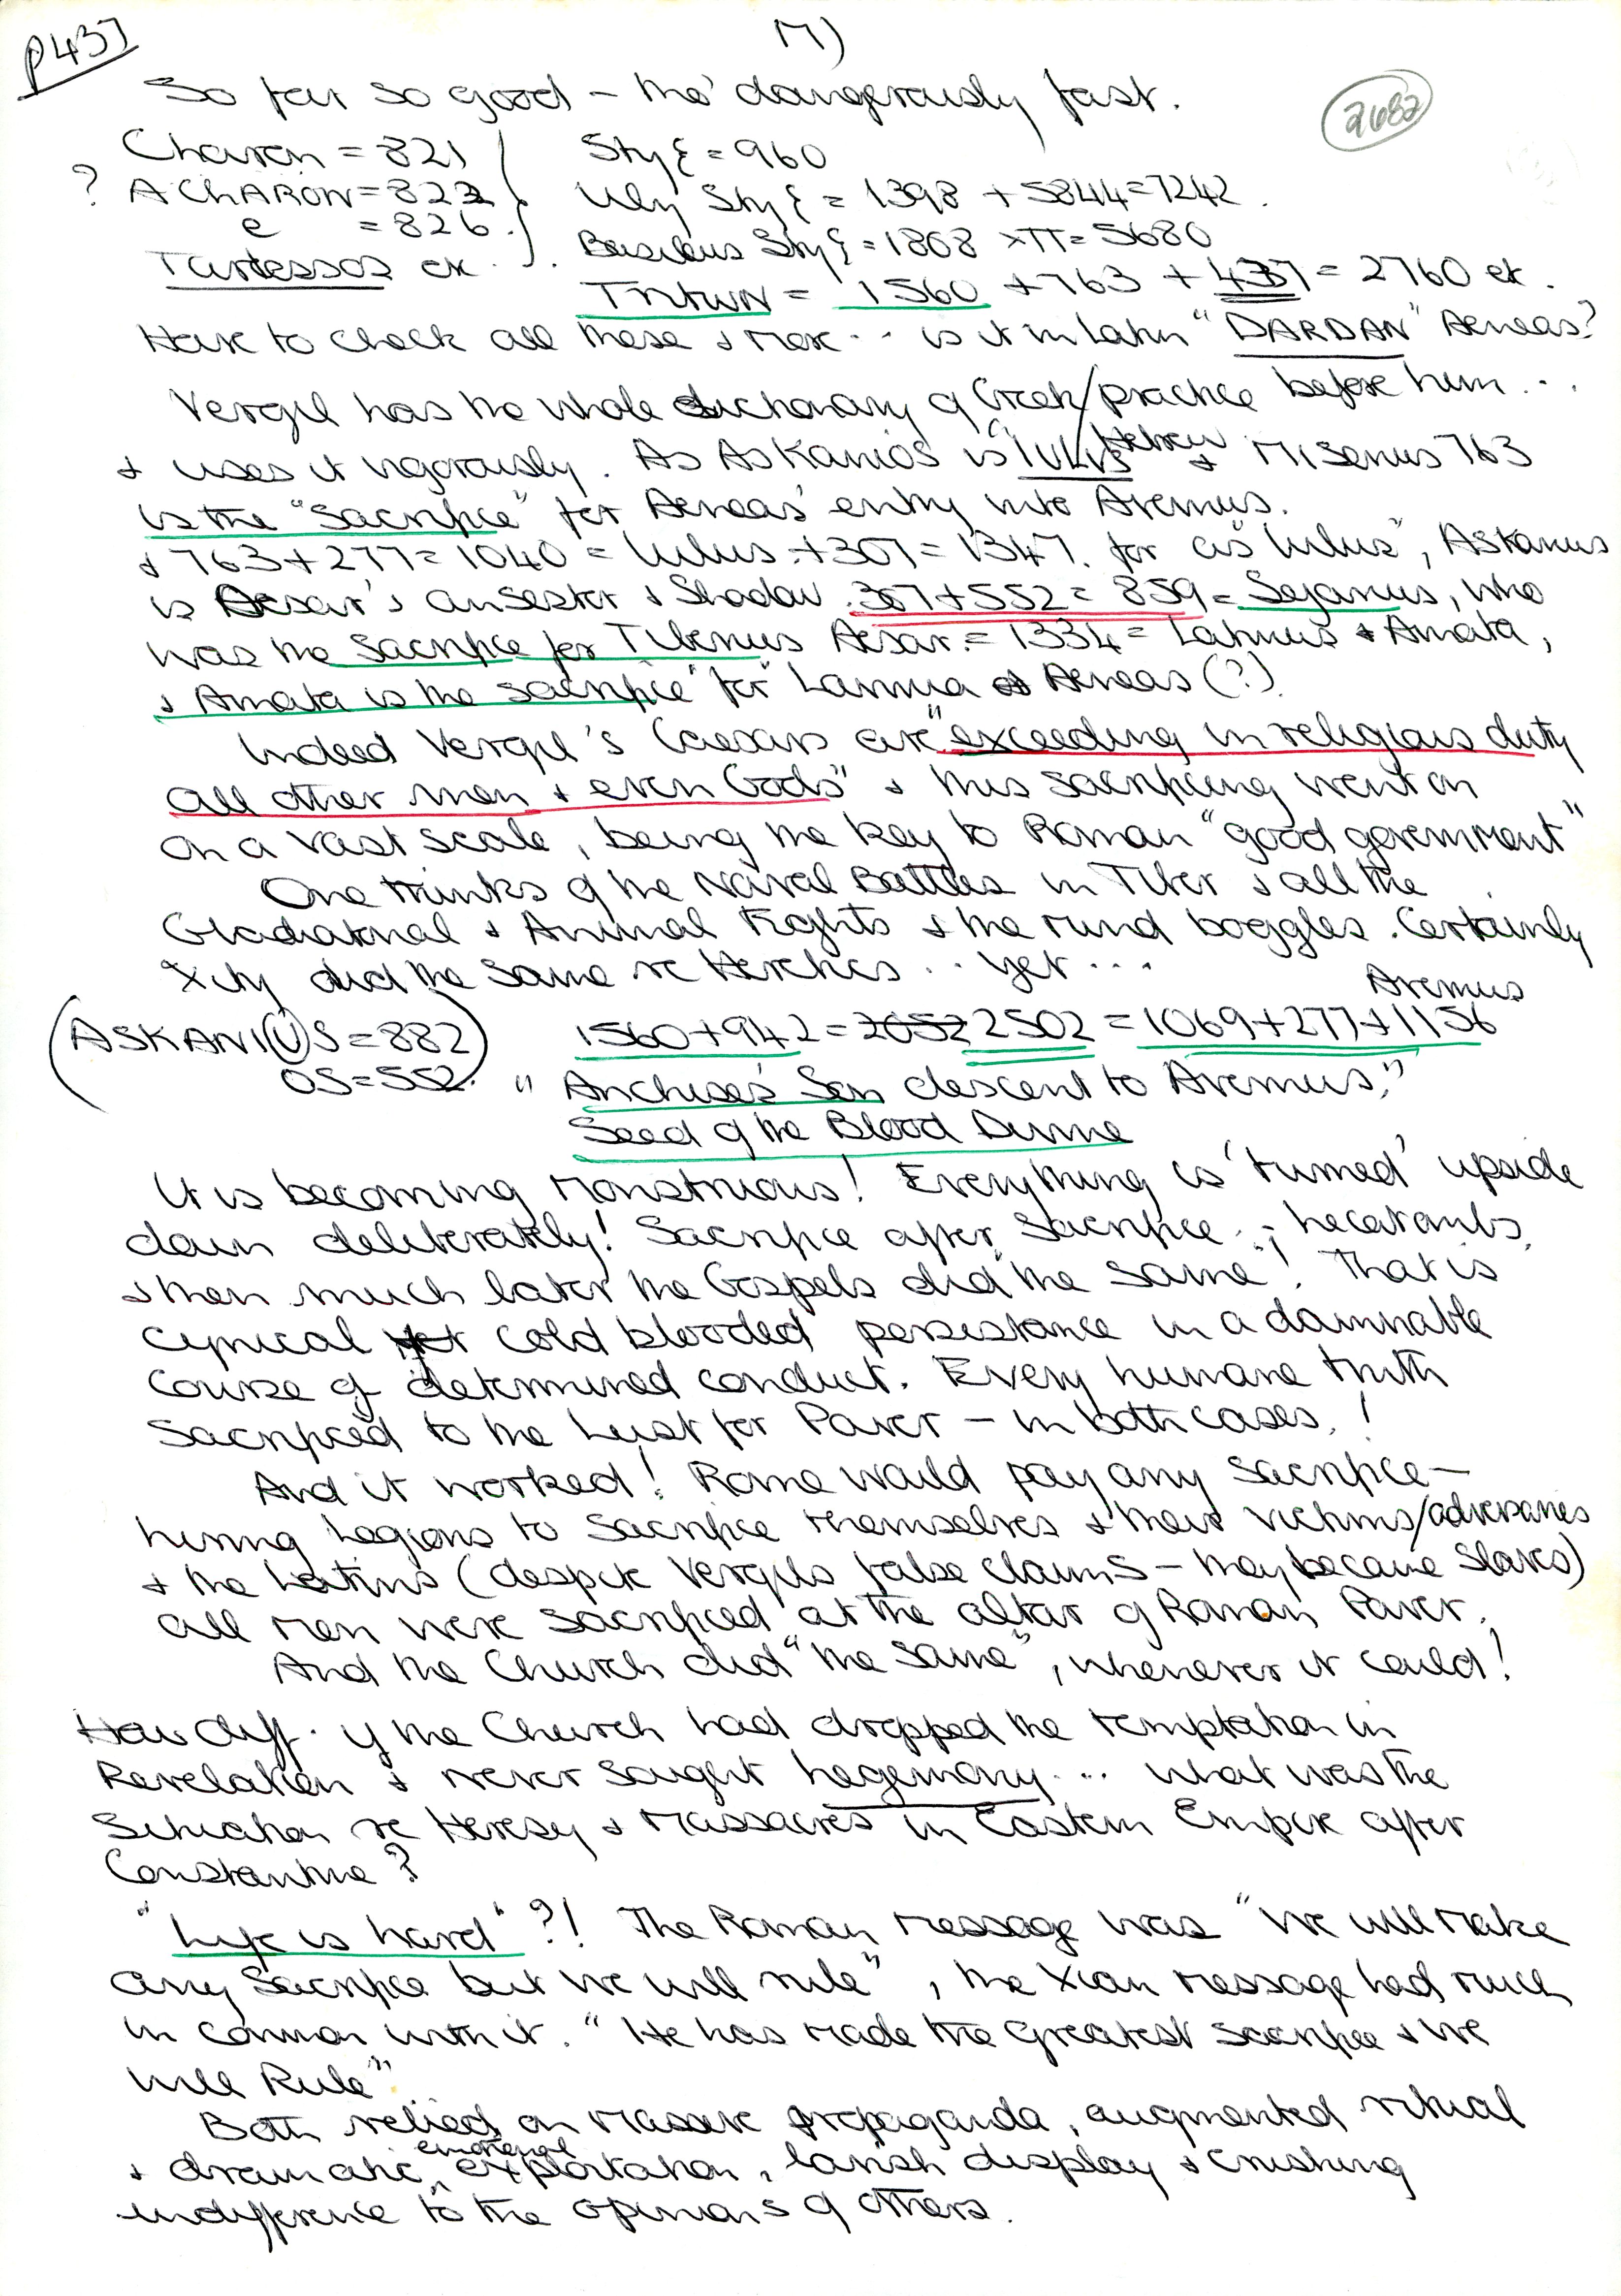 p437
17)
2682
So far so good – tho' dangerously fast.
Charon = 821
? ACHARON = 822
e = 826.
Tartessos etc.
Styξ = 960
Uly Styξ = 1398 + 5844 = 7242.
Basileus Styξ = 1808 × TT = 5680
Tritwn = 1560 + 763 + 437 = 2760 etc.
Have to check all these & more .. is it in Latin "DARDAN" Aeneas?
Vergil has the whole dictionary of Greek/Hebrew practice before him ...
& uses it vigorously. As Askanios is "IULUS" & Misenus 763
is the "sacrifice" for Aeneas' entry into Avernus.
& 763 + 277 = 1040 = Iulus. + 307 = 1347. for as "Iulus", Askanius
is Aesar's ansester & Shadow. 307 + 552 = 859 = Sejanus, who
was the sacrifice for Tiberius Aesar. = 1334 = Latinus & Amata,
& Amata is the "sacrifice" for Lavinia & Aeneas (?).
Indeed Vergil's Caesars are "exceeding in religious duty
all other men & even Gods" & this sacrificing went on
on a vast scale, being the key to Roman "good government"
One thinks of the Naval Battles in Tiber & all the
Gladiatorial & Animal Fights & the mind boggles. Certainly
Xity did the same re Heretics .. yet ...
(ASKANI(U)S = 882
OS = 552.)
Avernus
1560 + 942 = 2052 2502 = 1069 + 277 + 1156
"Anchises' Son descent to Avernus,"
Seed of the Blood Divine
It is becoming monstruous! Everything is 'turned' upside
down deliberately! Sacrifice after Sacrifice .. ; hecatombs,
& then much later the Gospels did the same! That is
cynical cold blooded persistance in a damnable
course of determined conduct. Every humane truth
sacrificed to the Lust for Power – in both cases.!
And it worked! Rome would pay any sacrifice –
hiring Legions to sacrifice themselves & their victims/adversaries
& the Latins (despite Vergils false claims – they became slaves)
all men were sacrificed at the altar of Roman Power.
And the Church did "the same", whenever it could!
How diff. if the Church had dropped the temptation in
Revelation & never sought hegemony ... what was the
Situation re Heresy & Massacres in Eastern Empire after
Constantine?
"Life is hard" ?! The Roman message was "We will make
any Sacrifice but we will rule", the Xian message had much
in common with it. "He has made the greatest sacrifice & we
will Rule".
Both relied on massive propaganda, augmented ritual
& dramatic, emotional exploitation, lavish display & crushing
indifference to the opinions of others.